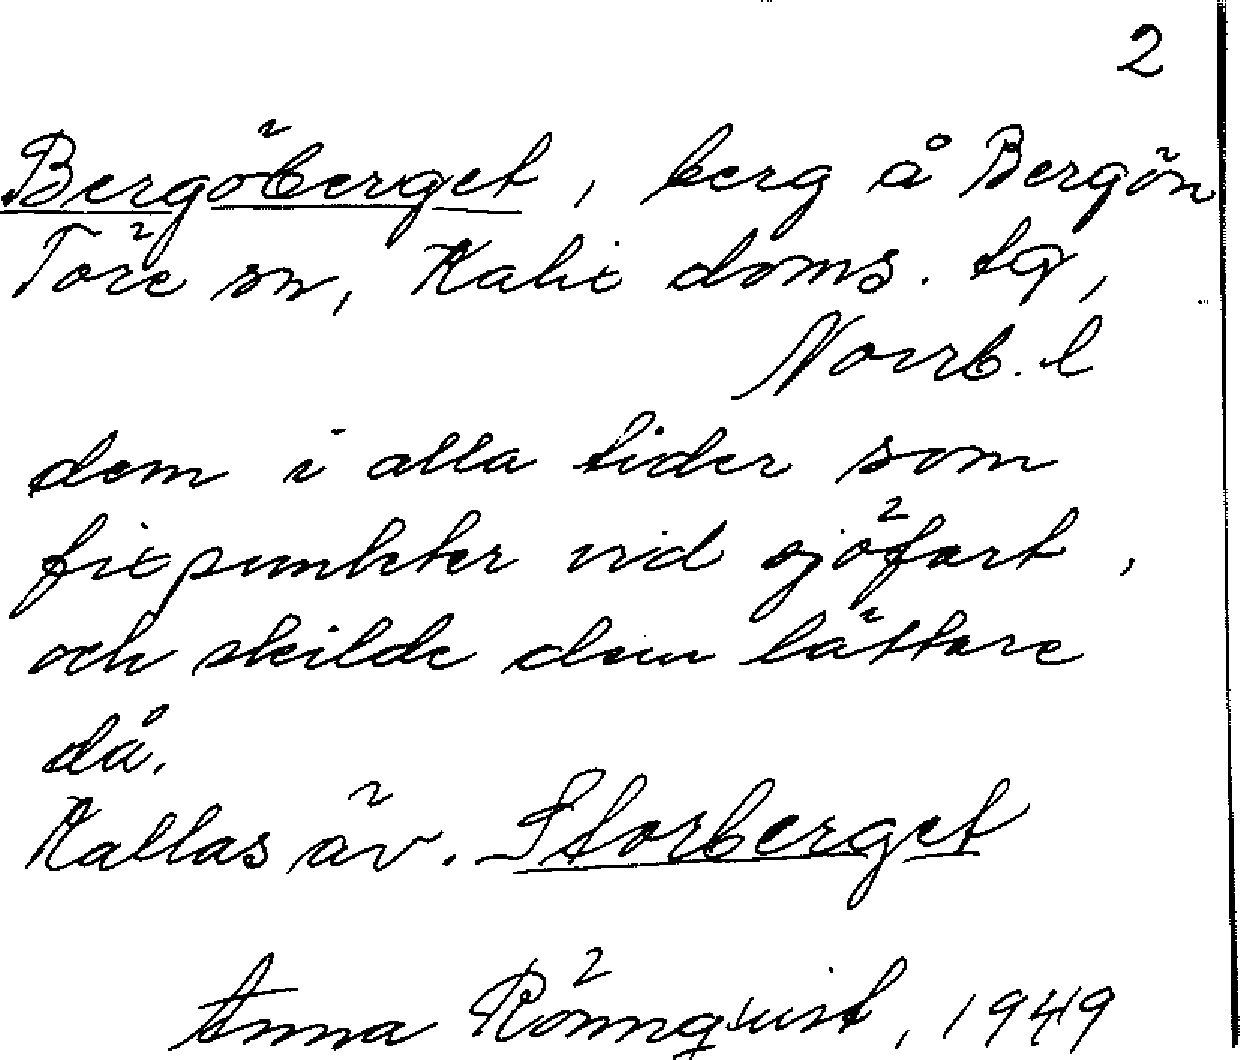 2
Bergöberget, berg å Bergön
Töre sn, Kalix doms. tg,
Norrb. l
dem i alla tider som
fixpunkter vid sjöfart,
och skilde dem lättare
då.
Kallas äv. Storberget
Anna Rönnqvist, 1949